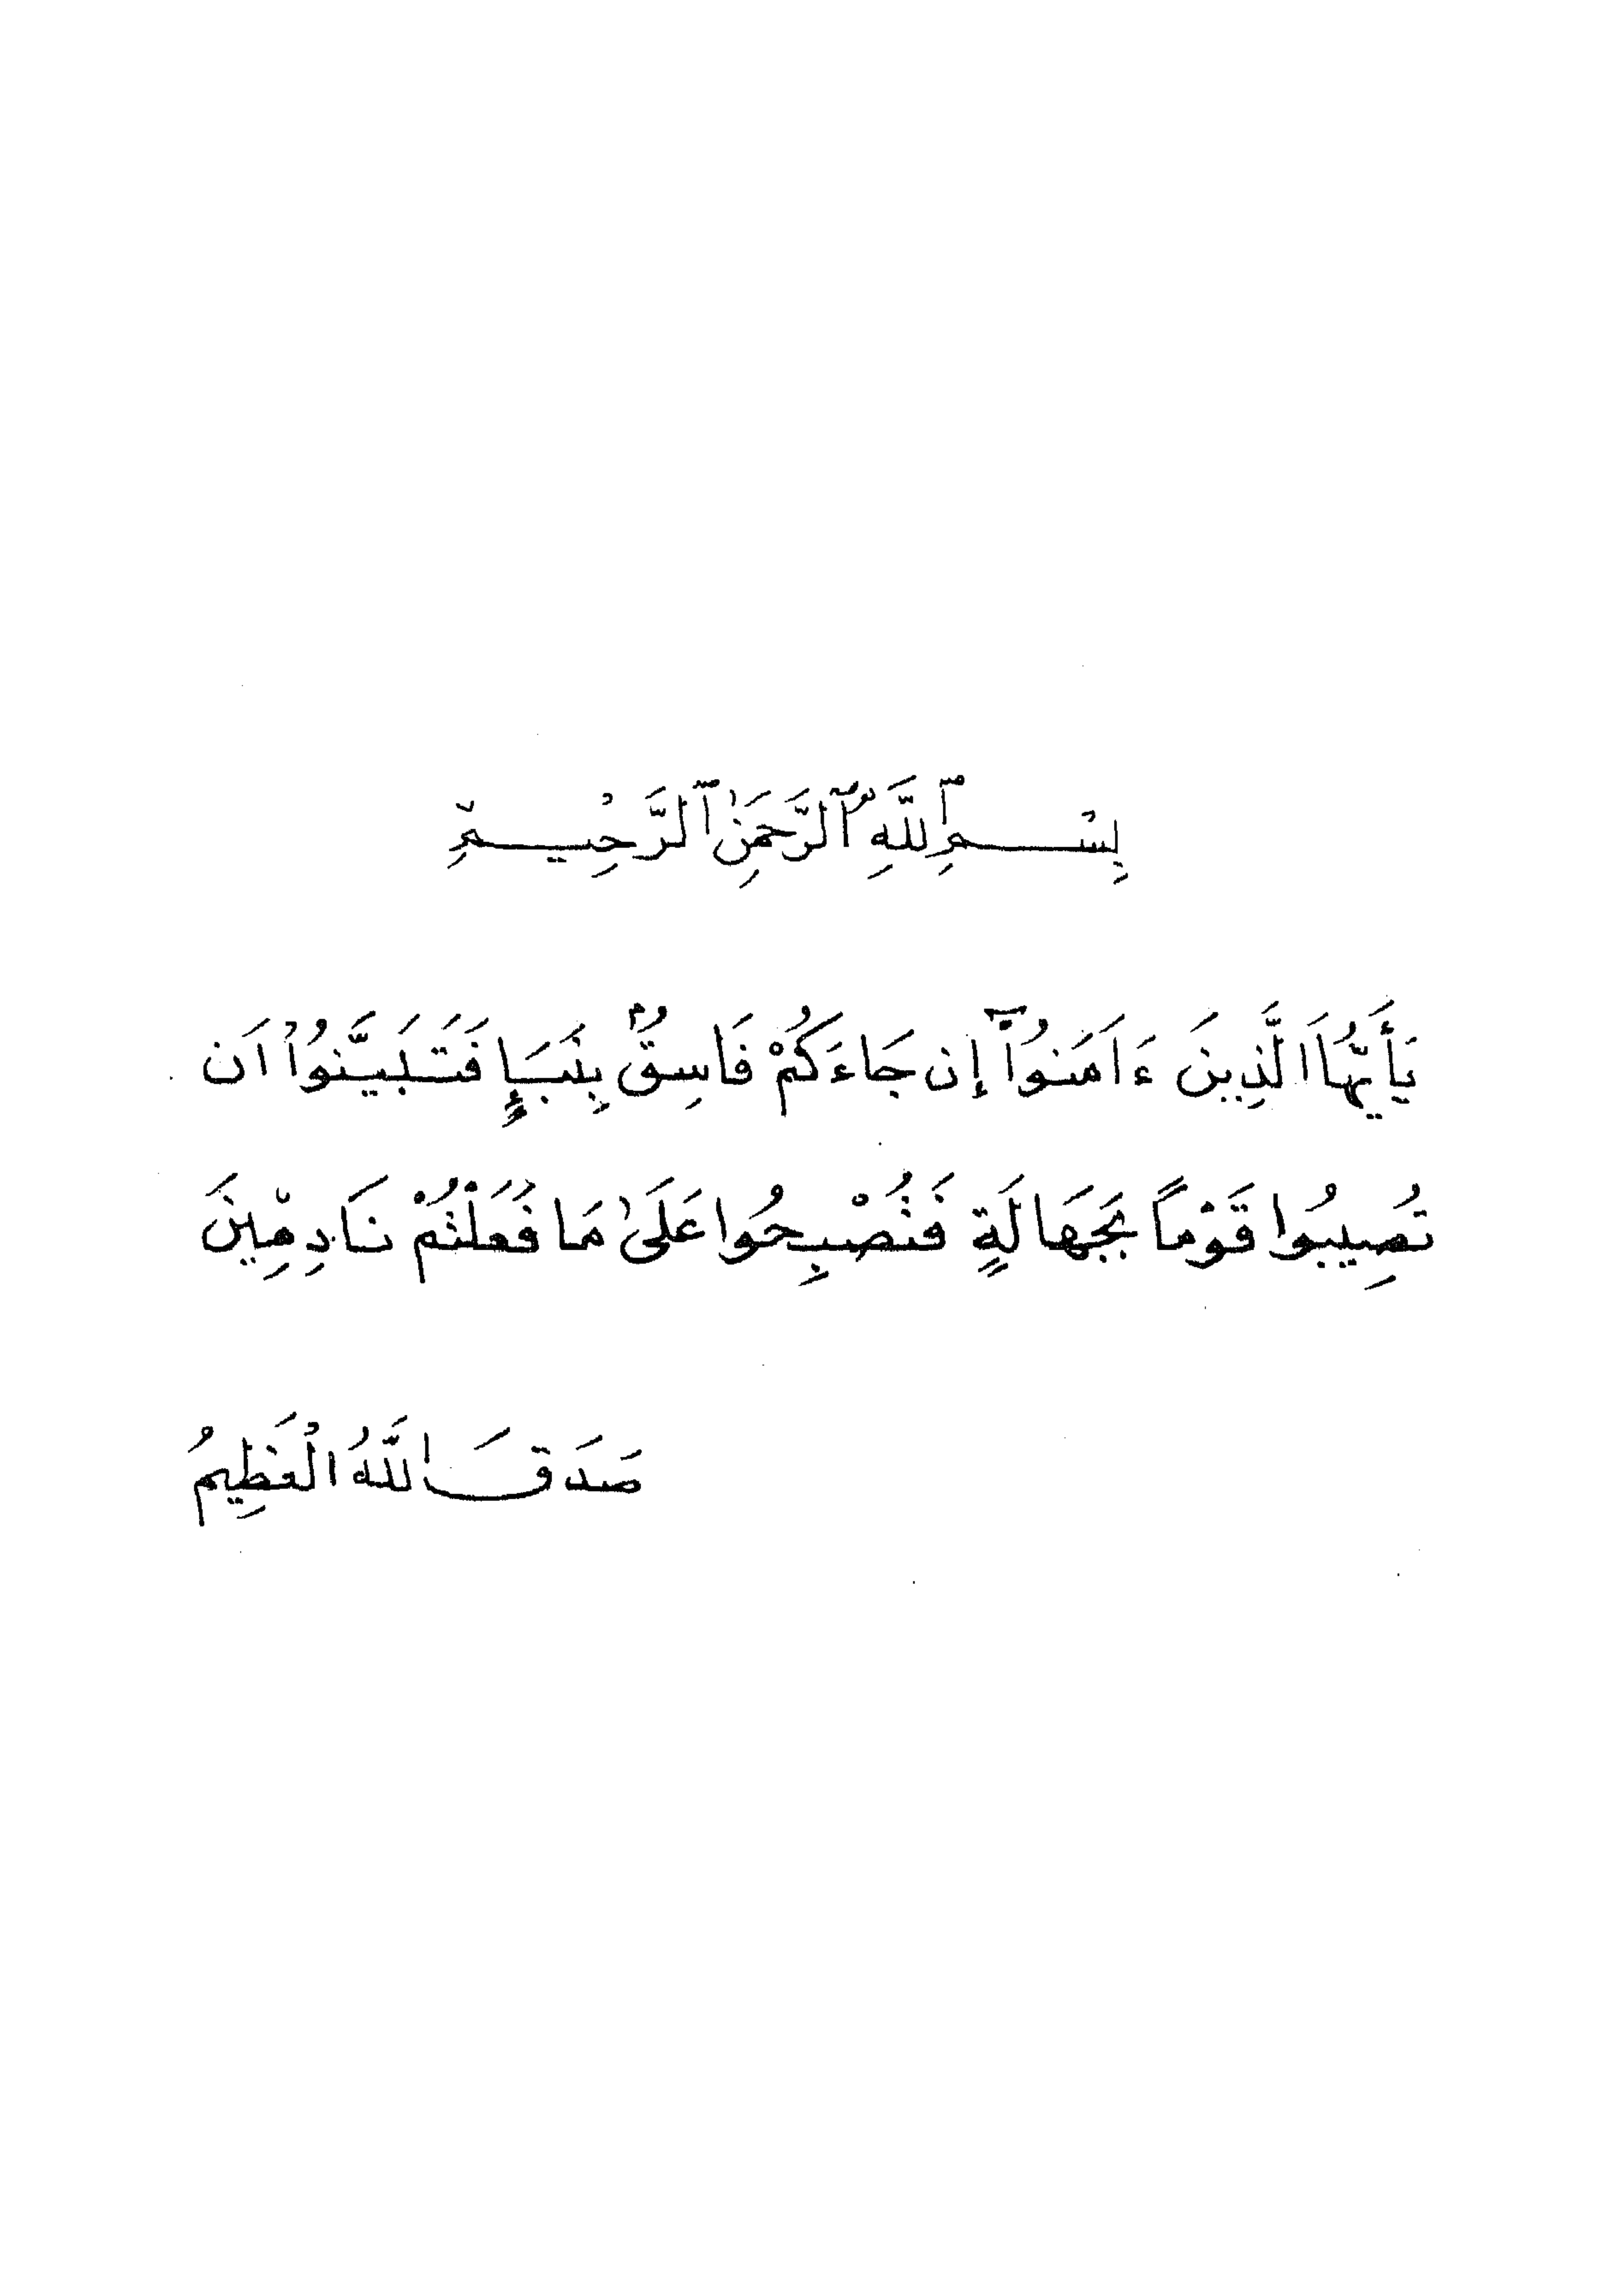 بِسْمِ ٱللَّهِ ٱلرَّحْمَٰنِ ٱلرَّحِيمِ
يَأَيُّهَا الَّذِينَ ءَامَنُوٓاْ إِن جَاءَكُمْ فَاسِقٌ بِنَبَإٍ فَتَبَيَّنُوٓاْ اَن
تُصِيبُوا قَوْمًا بِجَهَالَةٍ فَتُصْبِحُوا عَلَىٰ مَا فَعَلْتُمْ نَادِمِينَ
صَدَقَ اللَّهُ الْعَظِيمُ